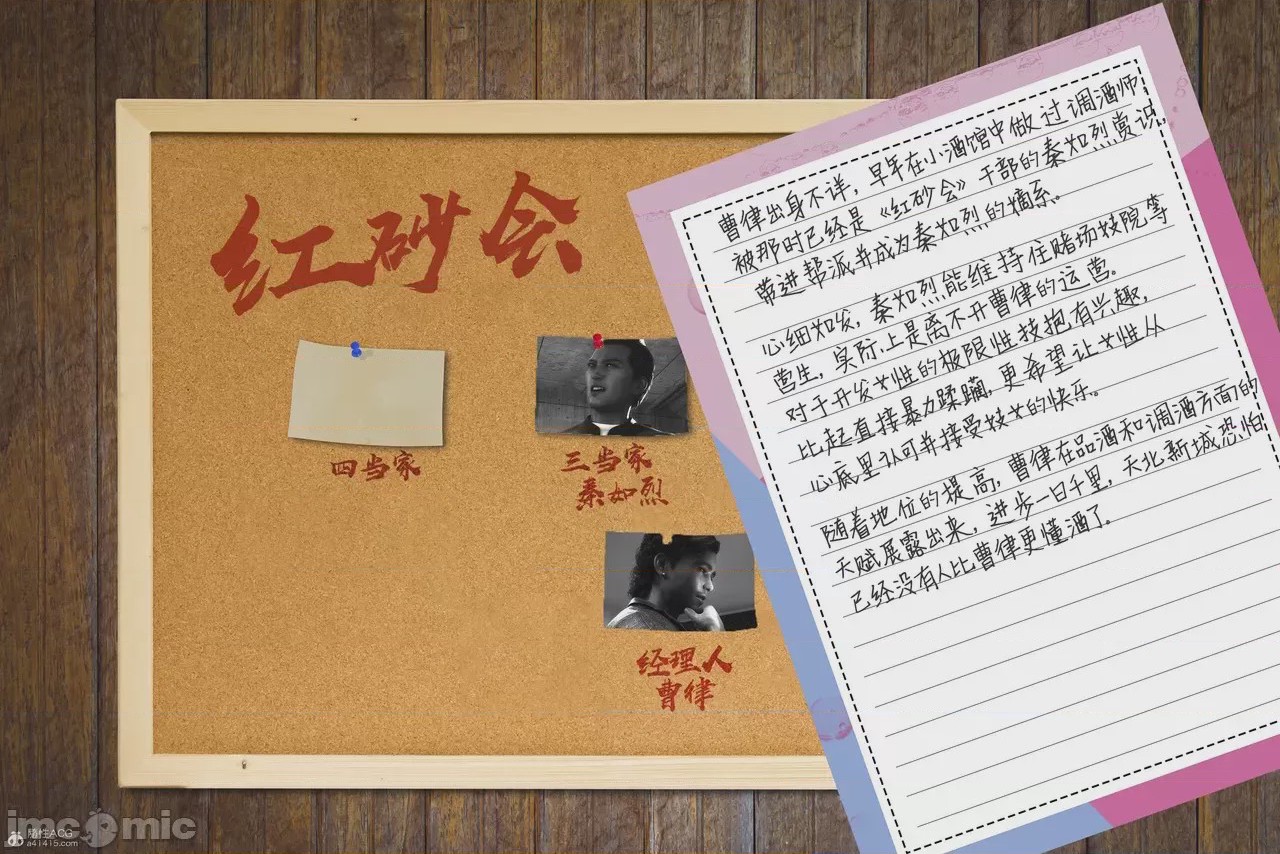 红砂会
四当家
三当家
秦如烈
经理人
曹律
曹律出身不详，早年在小酒馆中做过调酒师，
被那时已经是《红砂会》干部的秦如烈赏识，
带进帮派并成为秦如烈的嫡系。
心细如发，秦如烈能维持住赌场妓院等
营生，实际上是离不开曹律的运营。
对于开发女性的极限性技抱有兴趣，
比起直接暴力蹂躏，更希望让女性从
心底里认可并接受妓女的快乐。
随着地位的提高，曹律在品酒和调酒方面的
天赋展露出来，进步一日千里，天北新城恐怕
已经没有人比曹律更懂酒了。
jmcomic
随性ACG
a41415.com